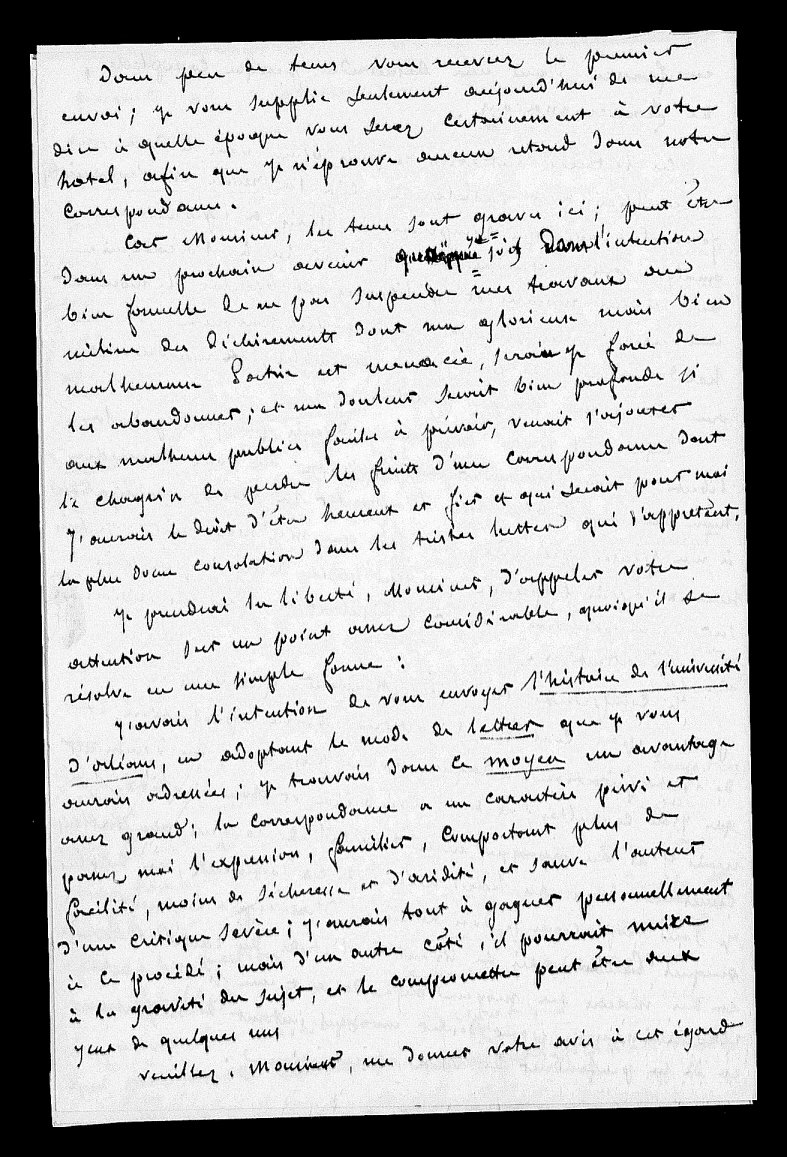 Dans peu de tems vous recevrez le premier
envoi ; je vous supplie seulement aujourd'hui de me
dire à quelle époque vous serez certainement à votre
hotel, afin que je n'éprouve aucun retard dans notre
correspondance.
Car Monsieur, les tems sont graves ici ; peut être
dans un prochain avenir que j'ai dans l'intention
bien formelle de ne pas suspendre mes travaux
victime des déchirements dont ma glorieuse mais bien
malheureuse Patrie est menacée, serais je forcé de
les abandonner ; et ma douleur serait bien profonde si
aux malheurs publics faciles à prévoir, venait s'ajouter
le chagrin de perdre les fruits d'une correspondance dont
j'aurais le droit d'être heureux et fier et qui serait pour moi
la plus douce consolation dans les tristes luttes qui s'apprêtent.
Je prendrai la liberté, Monsieur, d'appeler votre
attention sur un point assez considérable, quoiqu'il se
résolve en une simple forme :
J'avais l'intention de vous envoyer l'histoire de l'université
d'orléans, en adoptant le mode de lettres que je vous
aurais adressées ; je trouvais dans ce moyen un avantage
assez grand ; la correspondance a un caractère privé et
passez moi l'expression, familier, comportant plus de
facilité, moins de sécheresse et d'aridité, et sauve l'auteur
d'une critique sévère ; j'aurais tout à gagner personnellement
à ce procédé ; mais d'un autre côté, il pourrait nuire
à la gravité du sujet, et le compromettre peut être aux
yeux de quelques uns
veuillez, Monsieur, me donner votre avis à cet égard